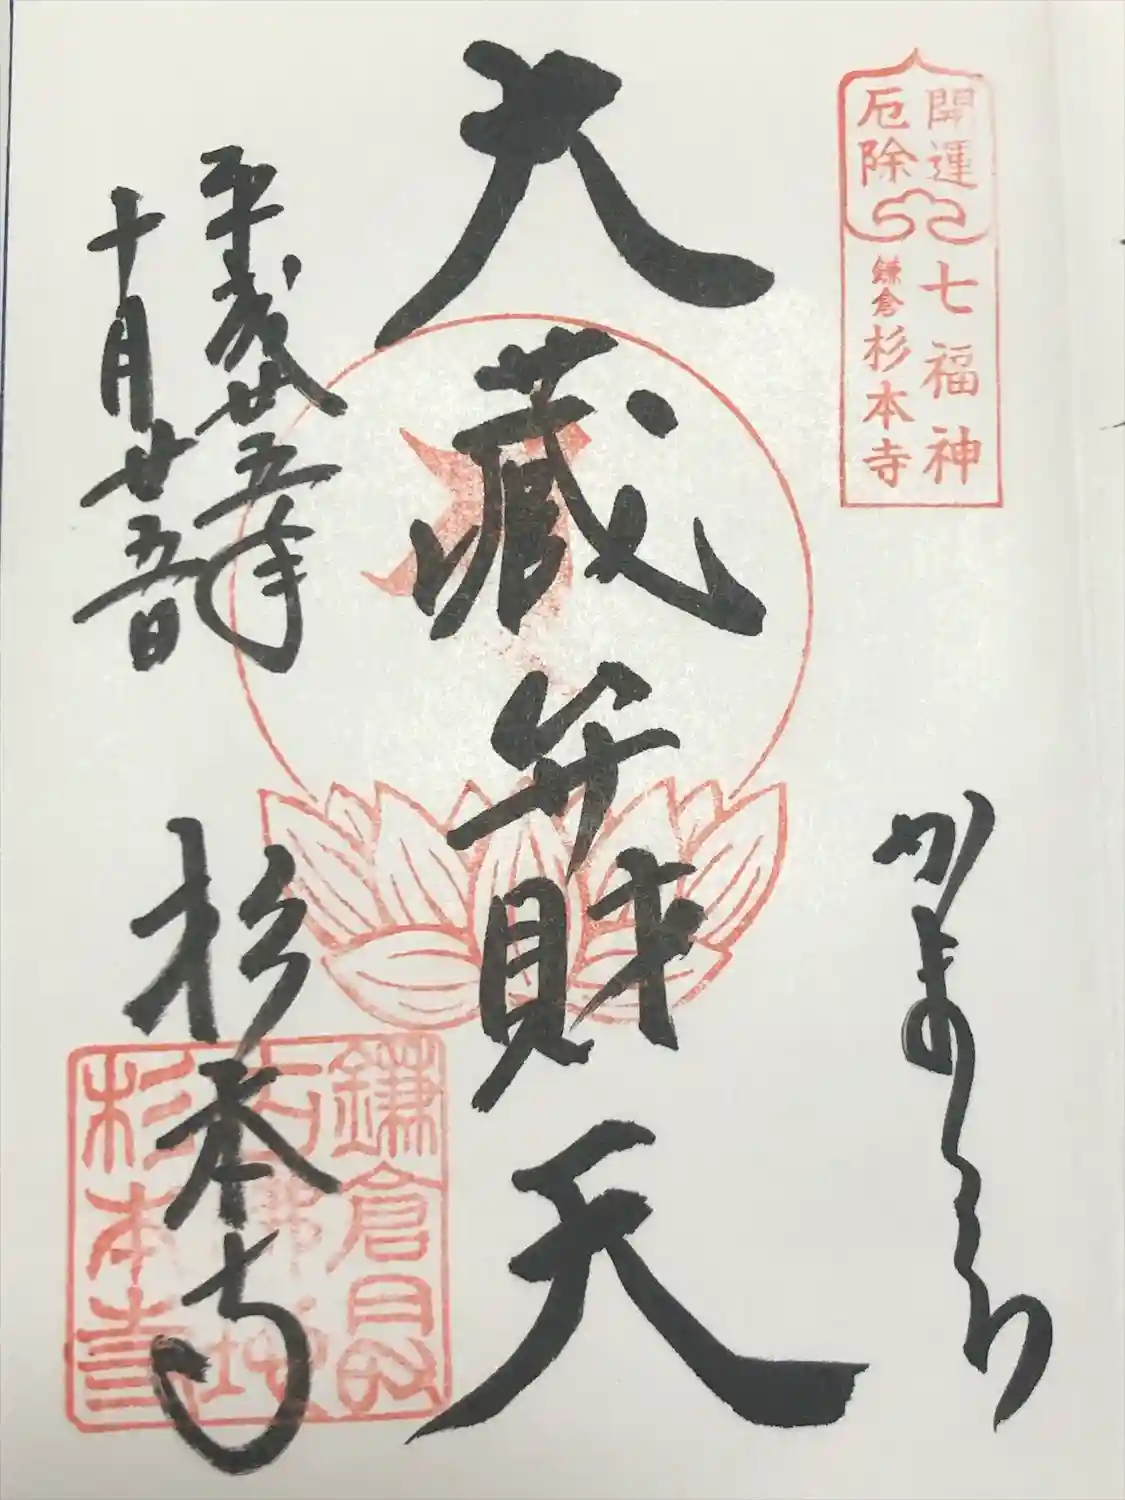 開運
厄除
七福神
鎌倉杉本寺
かまくら
大蔵弁財天
平成廿五年
十月廿五日
杉本寺
鎌倉最
杉本寺